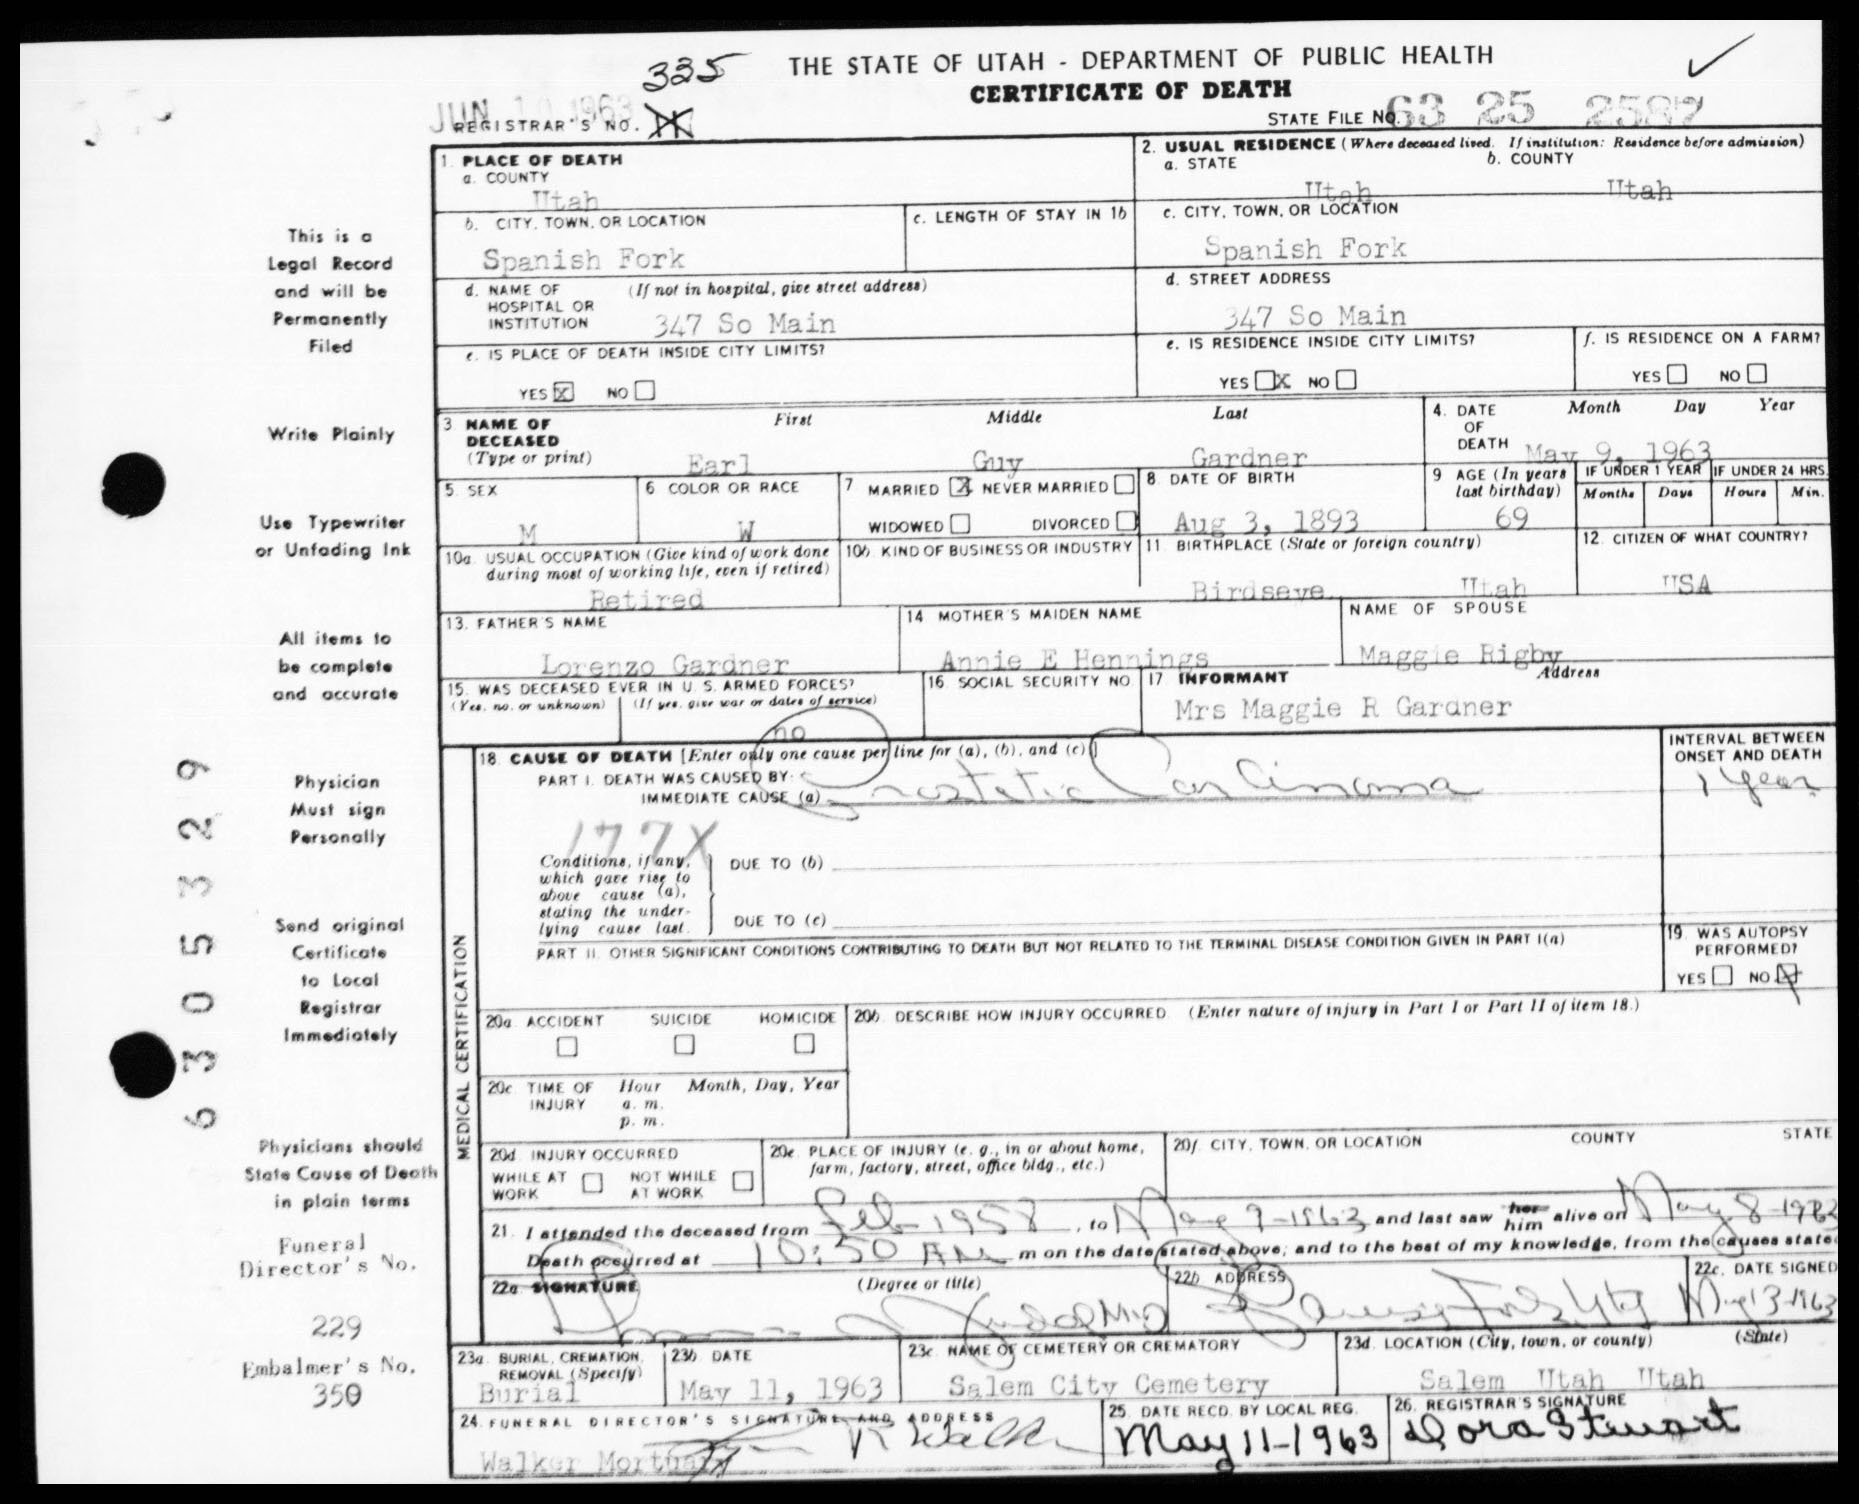 THE STATE OF UTAH - DEPARTMENT OF PUBLIC HEALTH
335
CERTIFICATE OF DEATH
JUN 10 1963
REGISTRAR'S NO.
STATE FILE NO. 63 25 2587
This is a
Legal Record
and will be
Permanently
Filed
Write Plainly
Use Typewriter
or Unfading Ink
All items to
be complete
and accurate
Physician
Must sign
Personally
Send original
Certificate
to Local
Registrar
Immediately
Physicians should
State Cause of Death
in plain terms
Funeral
Director's No.
229
Embalmer's No.
350
6305329
1. PLACE OF DEATH
a. COUNTY
Utah
2. USUAL RESIDENCE (Where deceased lived. If institution: Residence before admission)
a. STATE b. COUNTY
Utah Utah
b. CITY, TOWN, OR LOCATION
Spanish Fork
c. LENGTH OF STAY IN 1b
c. CITY, TOWN, OR LOCATION
Spanish Fork
d. NAME OF (If not in hospital, give street address)
HOSPITAL OR
INSTITUTION 347 So Main
d. STREET ADDRESS
347 So Main
e. IS PLACE OF DEATH INSIDE CITY LIMITS?
YES X NO
e. IS RESIDENCE INSIDE CITY LIMITS?
YES X NO
f. IS RESIDENCE ON A FARM?
YES NO
3 NAME OF First Middle Last
DECEASED
(Type or print) Earl Guy Gardner
4. DATE Month Day Year
OF
DEATH May 9, 1963
5. SEX
M
6 COLOR OR RACE
W
7 MARRIED X NEVER MARRIED
WIDOWED DIVORCED
8. DATE OF BIRTH
Aug 3, 1893
9 AGE (In years
last birthday)
69
IF UNDER 1 YEAR IF UNDER 24 HRS.
Months Days Hours Min.
10a. USUAL OCCUPATION (Give kind of work done
during most of working life, even if retired)
Retired
10b. KIND OF BUSINESS OR INDUSTRY
11. BIRTHPLACE (State or foreign country)
Birdseye Utah
12. CITIZEN OF WHAT COUNTRY?
USA
13. FATHER'S NAME
Lorenzo Gardner
14 MOTHER'S MAIDEN NAME
Annie E Hennings
NAME OF SPOUSE
Maggie Rigby
15. WAS DECEASED EVER IN U. S. ARMED FORCES?
(Yes, no, or unknown) (If yes, give war or dates of service)
no
16. SOCIAL SECURITY NO
17 INFORMANT Address
Mrs Maggie R Gardner
MEDICAL CERTIFICATION
18. CAUSE OF DEATH [Enter only one cause per line for (a), (b), and (c)]
PART I. DEATH WAS CAUSED BY:
IMMEDIATE CAUSE (a) Prostatic Carcinoma
INTERVAL BETWEEN
ONSET AND DEATH
1 Year
177X
Conditions, if any,
which gave rise to
above cause (a),
stating the under-
lying cause last.
DUE TO (b)
DUE TO (c)
PART II. OTHER SIGNIFICANT CONDITIONS CONTRIBUTING TO DEATH BUT NOT RELATED TO THE TERMINAL DISEASE CONDITION GIVEN IN PART I(a)
19. WAS AUTOPSY
PERFORMED?
YES NO X
20a. ACCIDENT SUICIDE HOMICIDE
20b. DESCRIBE HOW INJURY OCCURRED. (Enter nature of injury in Part I or Part II of item 18.)
20c TIME OF Hour Month, Day, Year
INJURY a. m.
p. m.
20d. INJURY OCCURRED
WHILE AT WORK NOT WHILE AT WORK
20e. PLACE OF INJURY (e. g., in or about home,
farm, factory, street, office bldg., etc.)
20f. CITY, TOWN, OR LOCATION COUNTY STATE
21. I attended the deceased from Feb 1958, to May 9-1963 and last saw her him alive on May 8-1963
Death occurred at 10:50 AM m on the date stated above; and to the best of my knowledge, from the causes state
22a SIGNATURE (Degree or title)
MD
22b ADDRESS
Spanish Fork Utah
22c. DATE SIGNED
May 13-1963
23a. BURIAL, CREMATION,
REMOVAL (Specify)
Burial
23b DATE
May 11, 1963
23c. NAME OF CEMETERY OR CREMATORY
Salem City Cemetery
23d. LOCATION (City, town, or county) (State)
Salem Utah Utah
24. FUNERAL DIRECTOR'S SIGNATURE AND ADDRESS
Walker Mortuary
25. DATE RECD. BY LOCAL REG.
May 11-1963
26. REGISTRAR'S SIGNATURE
Dora Stewart